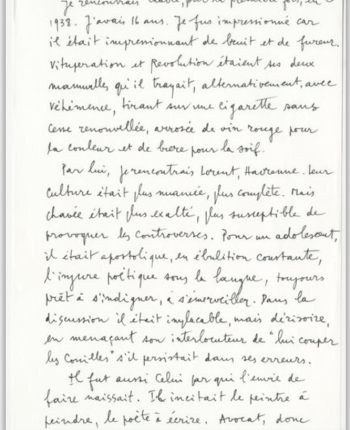 Je rencontrai Chavée, pour la première fois, en
1938. J'avais 16 ans. Je fus impressionné car
il était impressionnant de bruit et de fureur.
Vitupération et Revolution étaient ses deux
mamelles qu'il trayait, alternativement, avec
véhémence, tirant sur une cigarette sans
cesse renouvellée, arrosée de vin rouge pour
la couleur et de biere pour la soif.
Par lui, je rencontrais Lorent, Havrenne. Leur
culture était plus nuancée, plus complète. Mais
chavée était plus exalté, plus susceptible de
provoquer les controverses. Pour un adolescent,
il était apostolique, en ébulition constante,
l'injure poëtique sous la langue, toujours
prêt à s'indigner, à s'émerveiller. Dans la
discussion il était implacable, mais dérisoire,
en menaçant son interlocuteur de "lui couper
les Couilles" s'il persistait dans ses erreurs.
Il fut aussi Celui par qui l'envie de
faire naissait. Il incitait le peintre à
peindre, le poëte à écrire. Avocat, donc